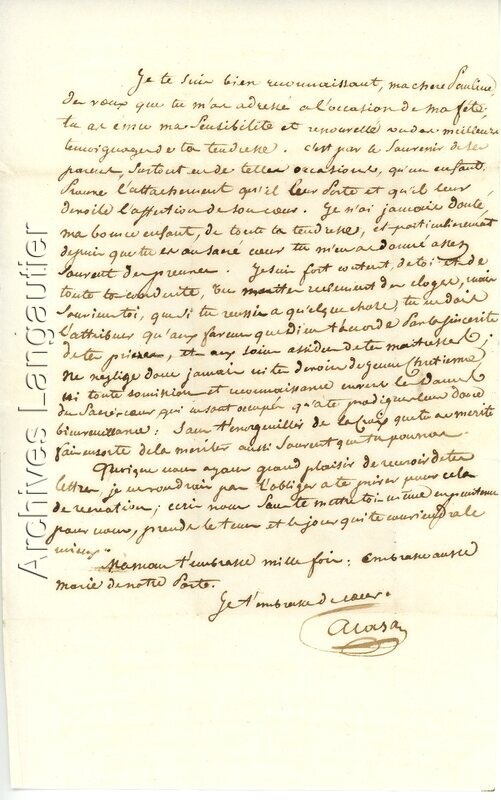 Je te suis bien reconnaissant, ma chere Pauline,
des voeux que tu m'as adressé a l'occasion de ma fête
tu as emu ma sensibilité et renouvellé un des meilleurs
temoignages de ta tendresse. c'est par le souvenir de ses
parens, surtout en de telles occasions, qu'un enfant
prouve l'attachement qu'il leur porte et qu'il leur
devoile l'affection de son coeur. Je n'ai jamais douté,
ma bonne enfant, de toute ta tendresse, et particulierement
depuis que tu es au sacré coeur tu m'en as donné assez
souvent des preuves. Je suis fort content de toi et de
toute ta conduite, tu merites reellement des eloges, mais
souviens toi, que si tu reussis a quelque chose, tu ne dois
l'attribuer qu'aux faveurs que dieu t'accorde par la sincerité
de tes prieres, et aux soins assidus de tes maitresses;
ne neglige donc jamais ni tes devoirs de jeune Chretienne
ni toute soumission et reconnaissance envers les Dames
du Sacré-coeur qui ne sont occupés qu'a te prodiguer leur douce
bienveillance: sans t'enorgueillir de la Croix que tu as merité
fais ensorte de la meriter aussi souvent que tu pourras.
Quoique nous ayons grand plaisir de recevoir de tes
lettres, je ne voudrais pas t'obliger a te priser pour cela
de recreation; ecris nous sans te mettre toi même en penitence
pour nous, prends le tems et le jour qui te conviendra le
mieux.
Maman t'embrasse mille fois; embrasse aussi
marie de notre part.
Je t'embrasse de coeur.
Archives Langautier